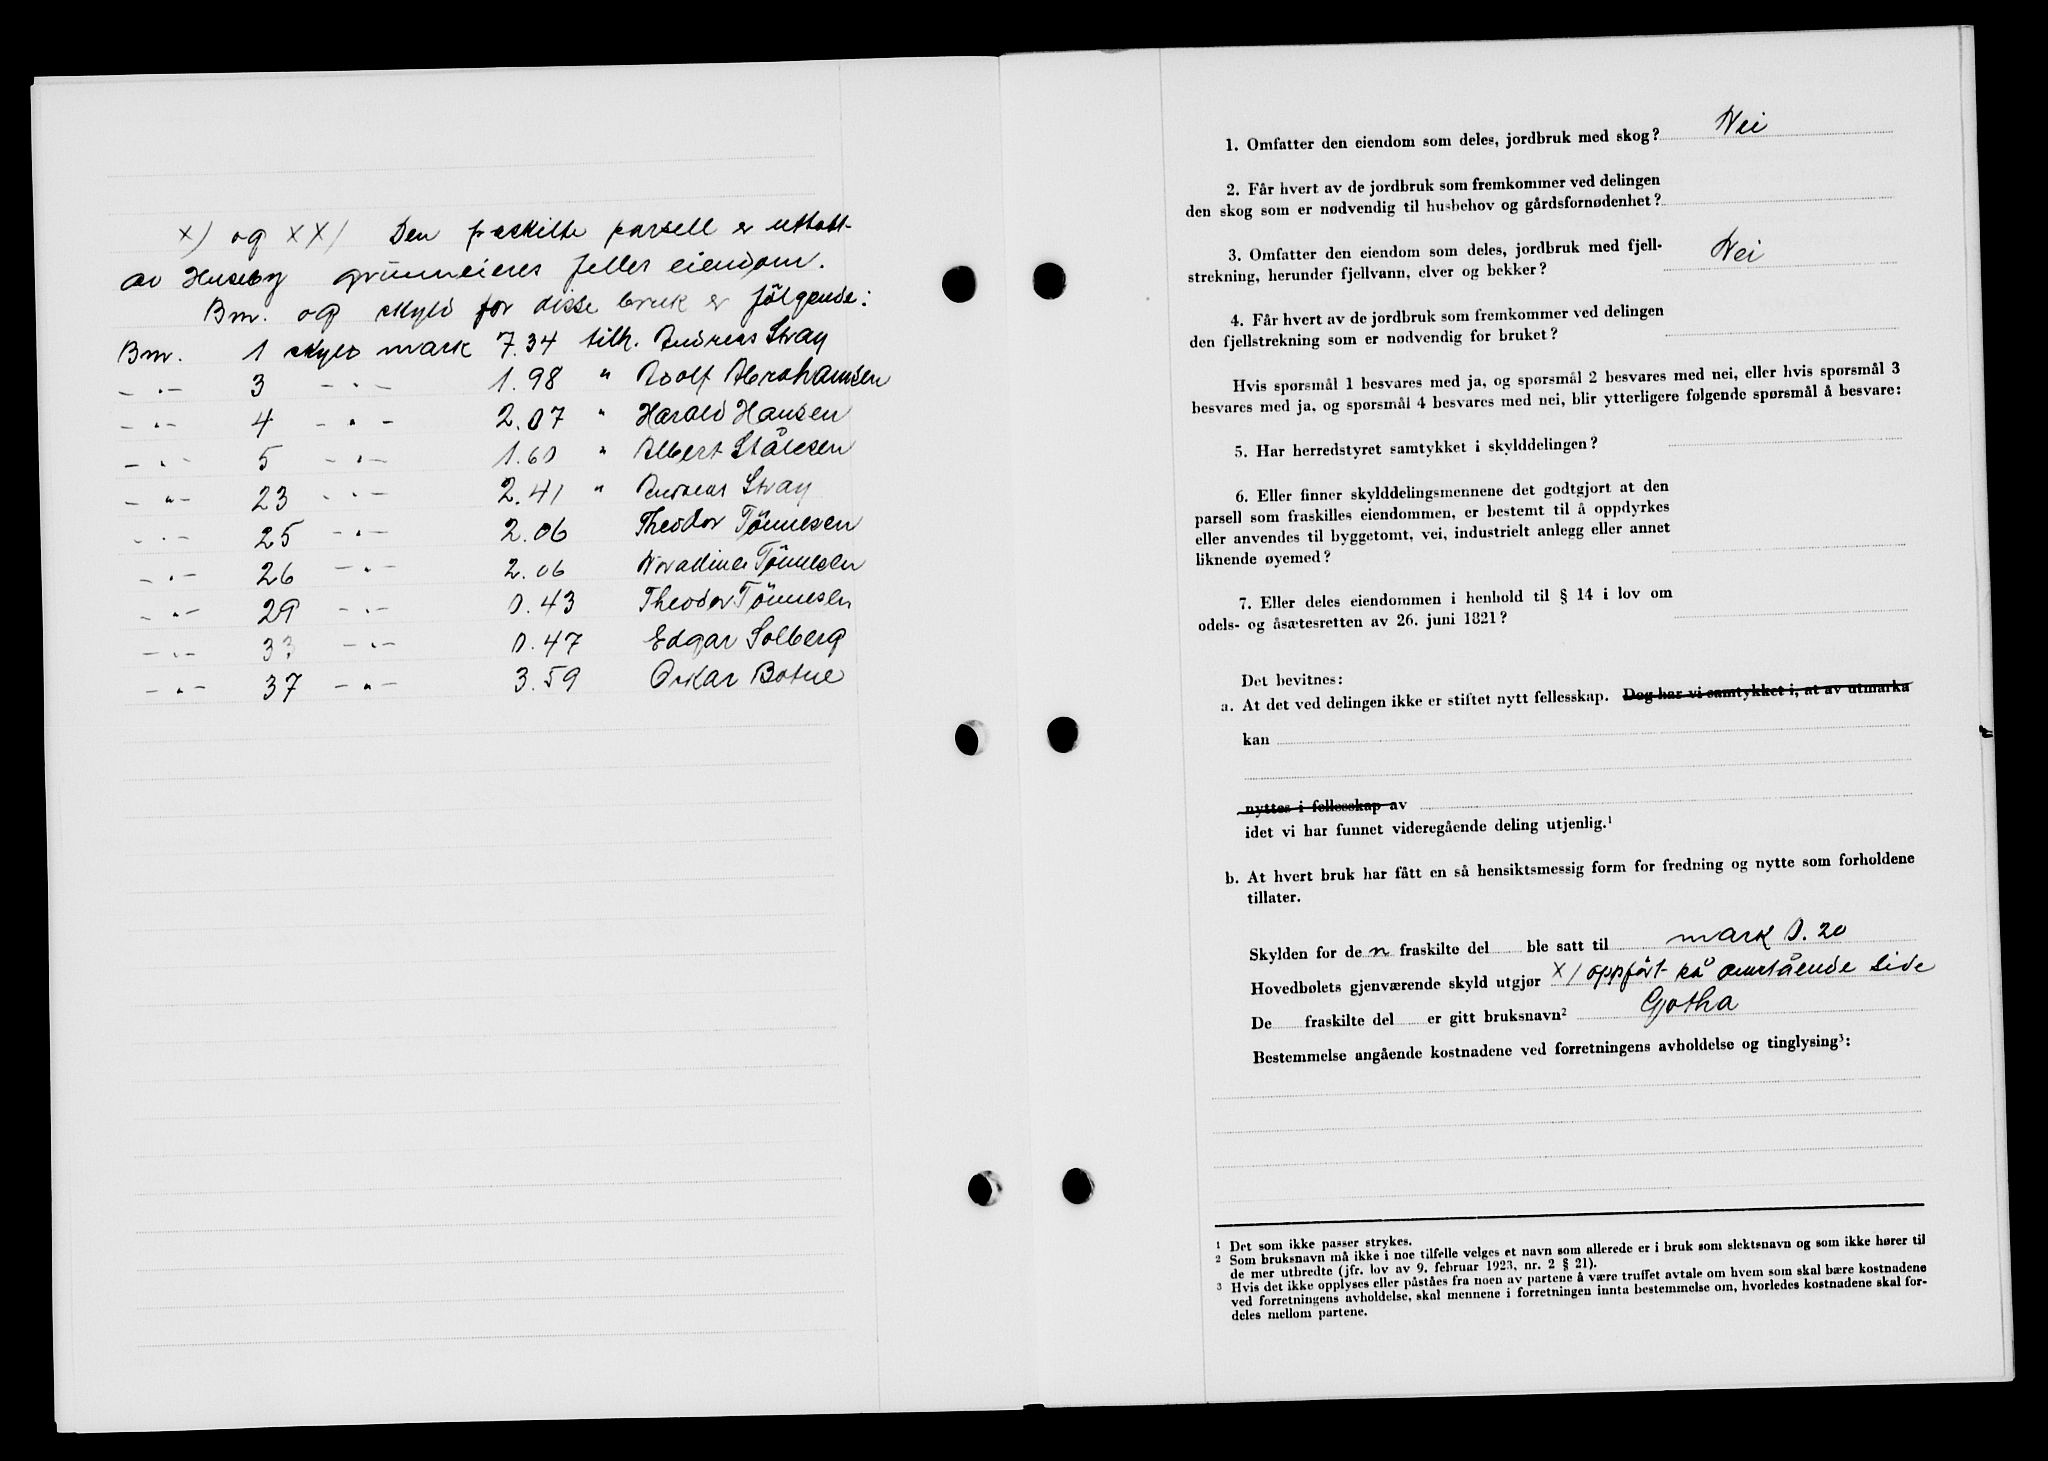 x) og xx) Den fraskilte parsell er uttatt
av Huseby grunneieres felles eiendom.
Bnr. og skyld for disse bruk er følgende:
Bnr. 1 skyld mark 7.34 tilh. Andreas Stray
-"- 3 -"- 1.98 " Adolf Abrahamsen
-"- 4 -"- 2.07 " Harald Hansen
-"- 5 -"- 1.60 " Albert Stålesen
-"- 23 -"- 2.41 " Andreas Stray
-"- 25 -"- 2.06 Theodor Tönnesen
-"- 26 -"- 2.06 Tönnesen
-"- 29 -"- 0.43 Theodor Tönnesen
-"- 33 -"- 0.47 Edgar Solberg
-"- 37 -"- 3.59 Oskar Botne
1. Omfatter den eiendom som deles, jordbruk med skog? Nei
2. Får hvert av de jordbruk som fremkommer ved delingen
den skog som er nødvendig til husbehov og gårdsfornødenhet?
3. Omfatter den eiendom som deles, jordbruk med fjell-
strekning, herunder fjellvann, elver og bekker? Nei
4. Får hvert av de jordbruk som fremkommer ved delingen
den fjellstrekning som er nødvendig for bruket?
Hvis spørsmål 1 besvares med ja, og spørsmål 2 besvares med nei, eller hvis spørsmål 3
besvares med ja, og spørsmål 4 besvares med nei, blir ytterligere følgende spørsmål å besvare:
5. Har herredstyret samtykket i skylddelingen?
6. Eller finner skylddelingsmennene det godtgjort at den
parsell som fraskilles eiendommen, er bestemt til å oppdyrkes
eller anvendes til byggetomt, vei, industrielt anlegg eller annet
liknende øyemed?
7. Eller deles eiendommen i henhold til § 14 i lov om
odels- og åsætesretten av 26. juni 1821?
Det bevitnes:
a. At det ved delingen ikke er stiftet nytt fellesskap. Dog har vi samtykket i, at av utmarka
kan
nyttes i fellesskap av
idet vi har funnet videregående deling utjenlig.¹
b. At hvert bruk har fått en så hensiktsmessig form for fredning og nytte som forholdene
tillater.
Skylden for de n fraskilte del ble satt til mark 0.20
Hovedbølets gjenværende skyld utgjør x) oppført på omstående side
De fraskilte del er gitt bruksnavn² Gotha
Bestemmelse angående kostnadene ved forretningens avholdelse og tinglysing³:
¹ Det som ikke passer strykes.
² Som bruksnavn må ikke i noe tilfelle velges et navn som allerede er i bruk som slektsnavn og som ikke hører til
de mer utbredte (jfr. lov av 9. februar 1923, nr. 2 § 21).
³ Hvis det ikke opplyses eller påståes fra noen av partene å være truffet avtale om hvem som skal bære kostnadene
ved forretningens avholdelse, skal mennene i forretningen innta bestemmelse om, hvorledes kostnadene skal for-
deles mellom partene.